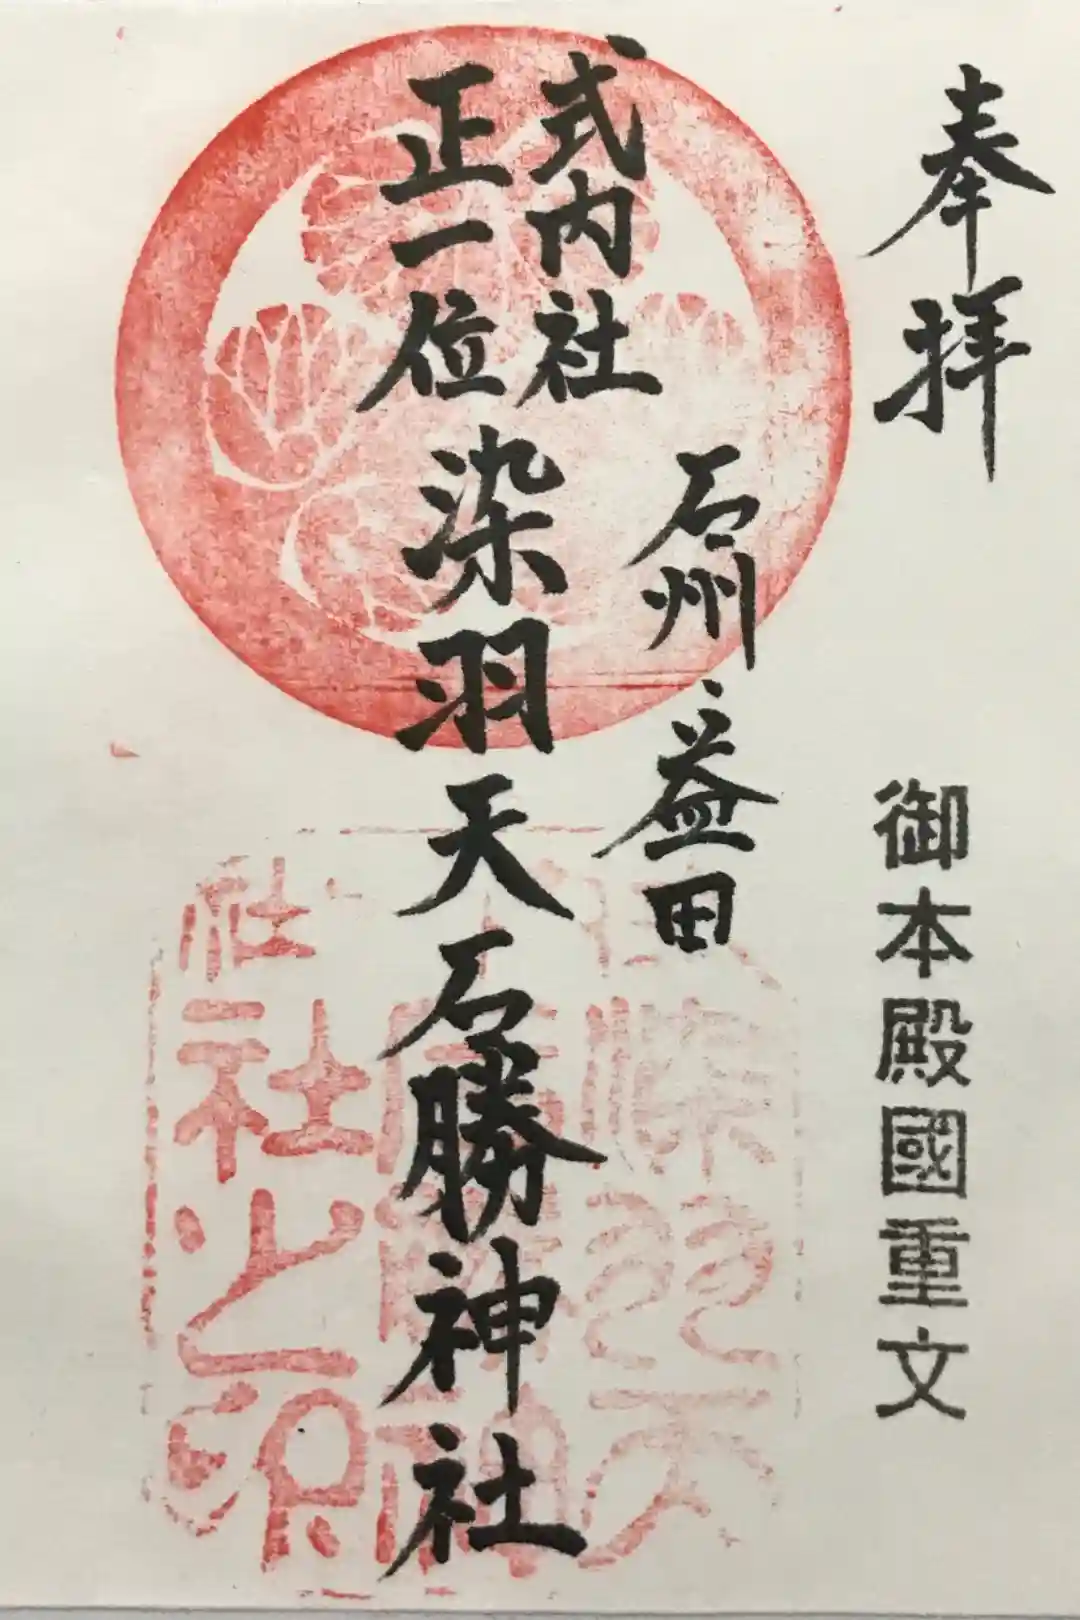 奉拝
御本殿國重文
石州益田
式内社
正一位
染羽天石勝神社